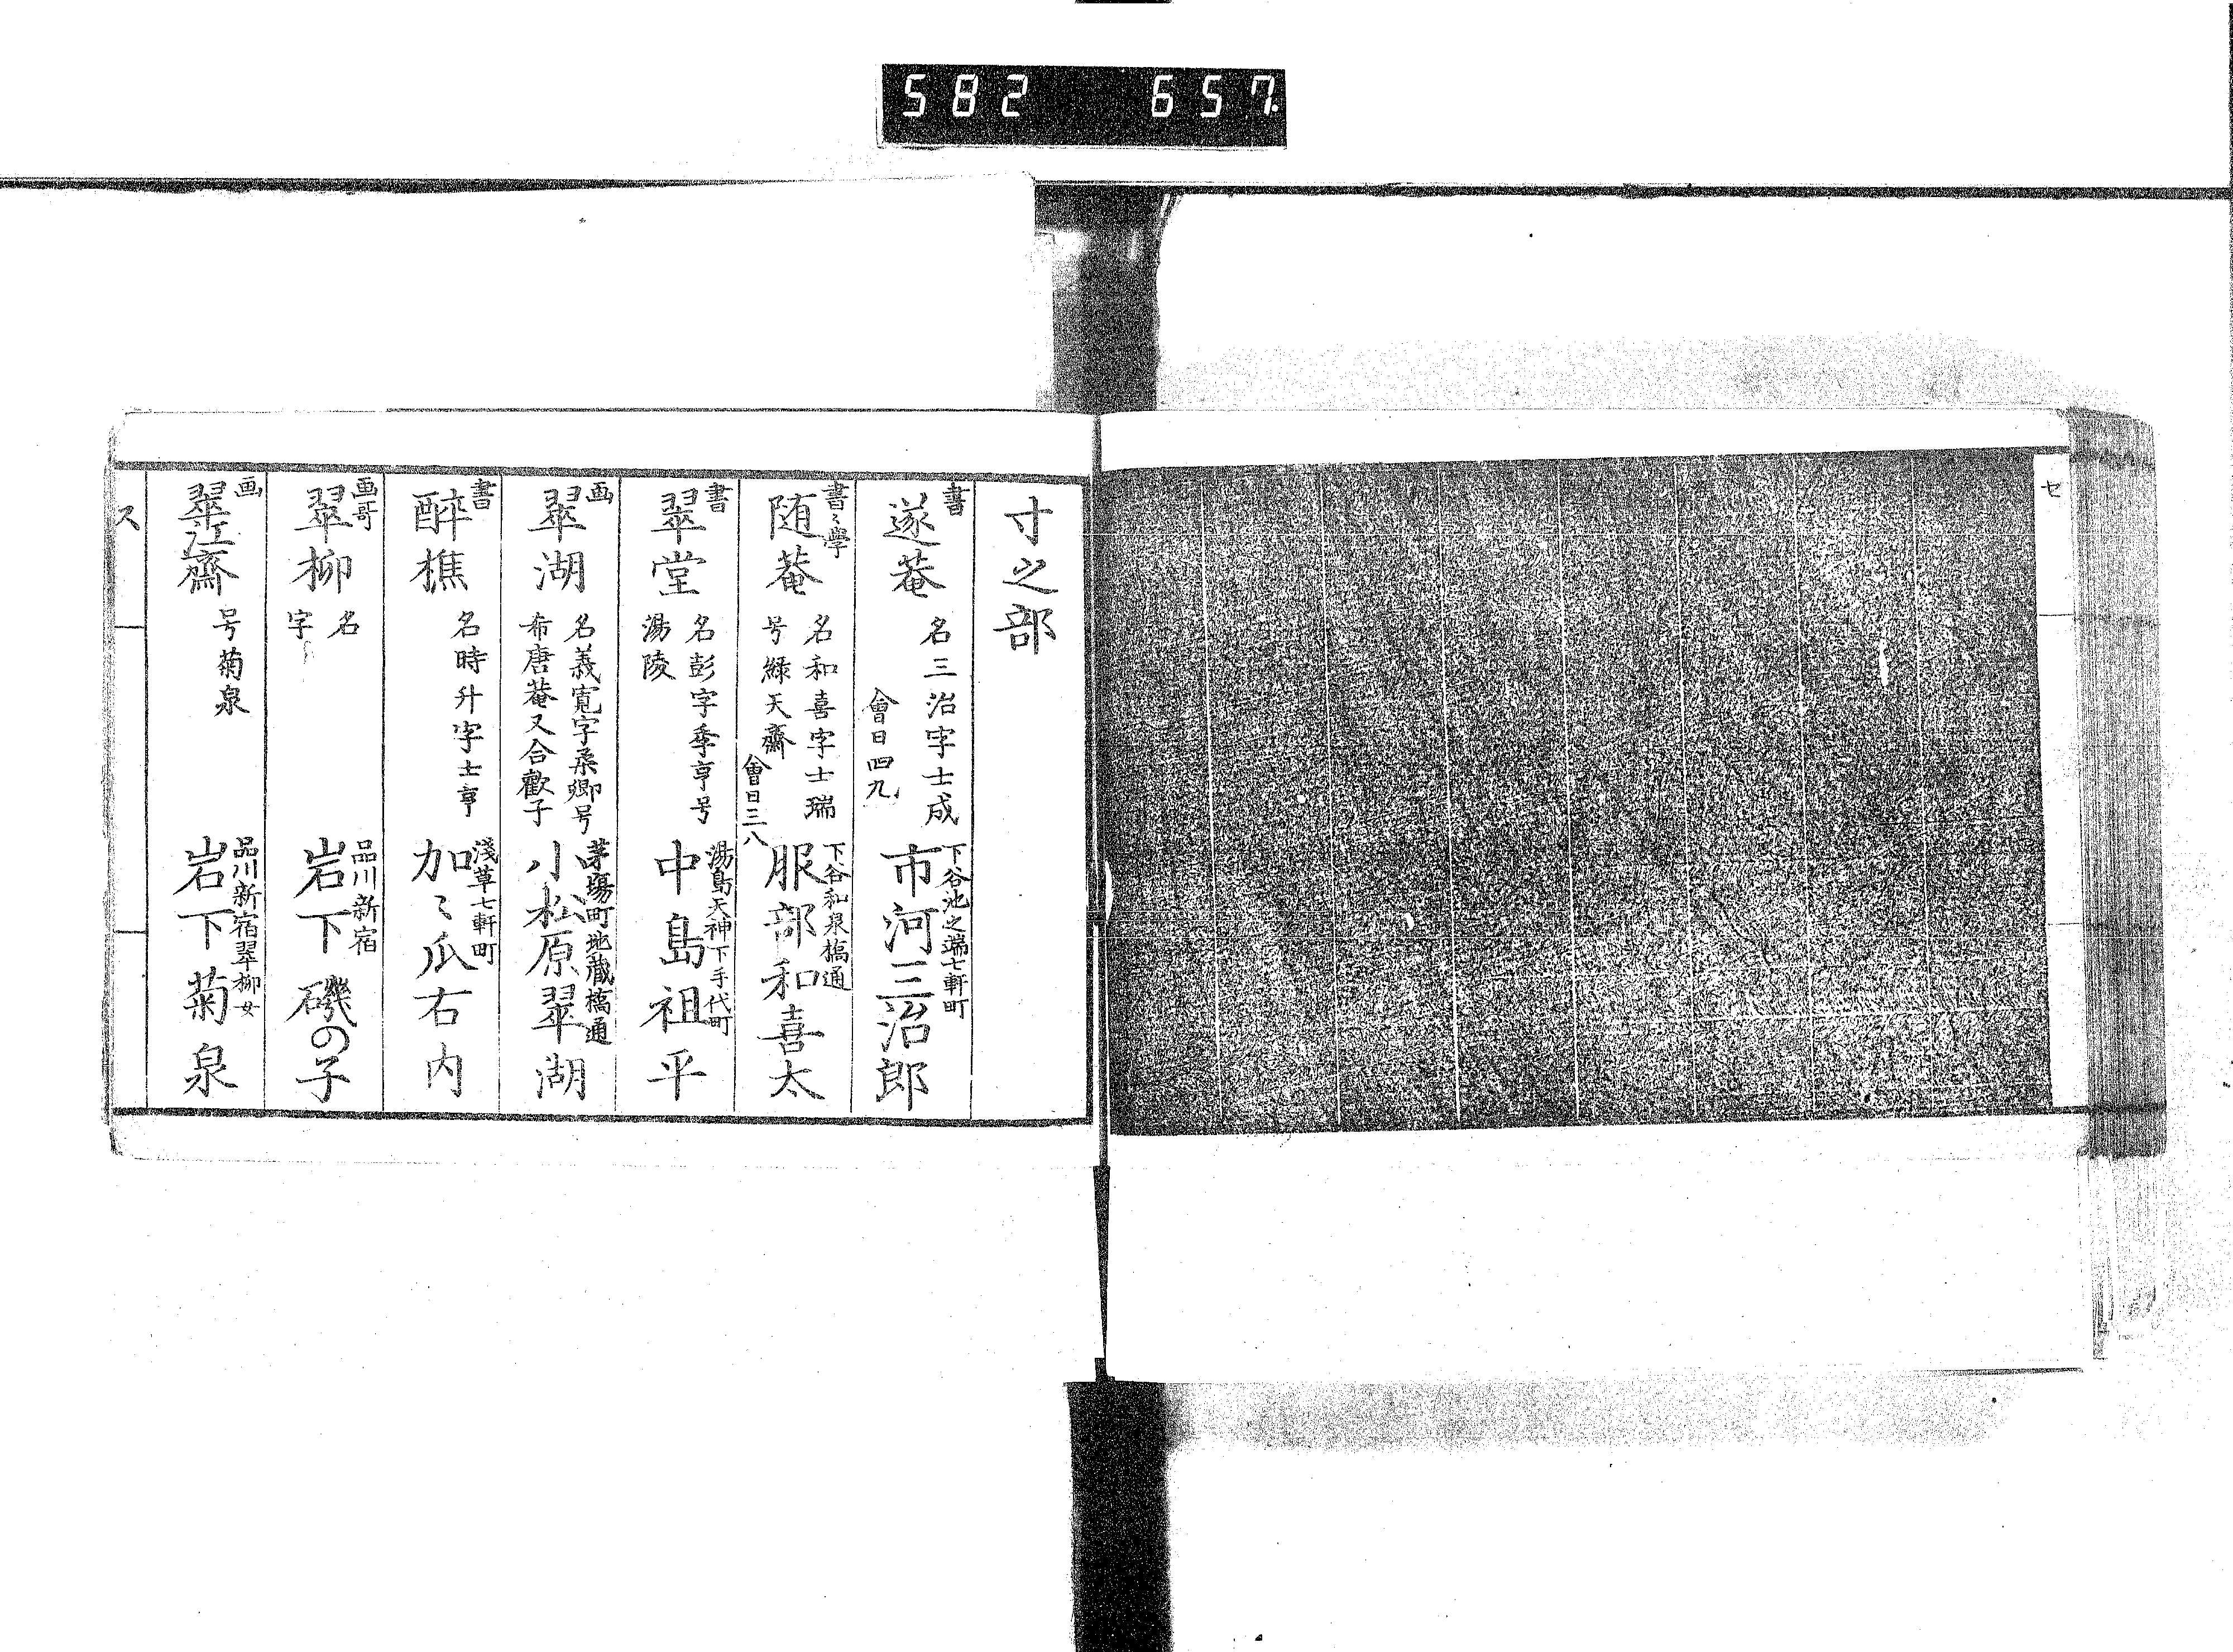 582 657.
セ
寸之部
書
遂菴
名三治字士成
會日四九
下谷池之端七軒町
市河三治郎
書ミ學
随菴
名和喜字士瑞
号綠天齋
會日三八
下谷和泉橋通
服部和喜太
書
翠堂
名彭字季亨号
湯陵
湯島天神下手代町
中島祖平
画
翠湖
名義寛字桑卿号
布唐菴又合歡子
茅場町地蔵橋通
小松原翠湖
書
醉樵
名時升字士亨
淺草七軒町
加ミ爪右内
画哥
翠柳
名
字
品川新宿
岩下磯の子
画
翠江齋
号菊泉
品川新宿翠柳女
岩下菊泉
ス